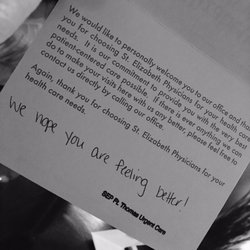 We would like to personally welcome you to our office and thank
you for choosing St. Elizabeth Physicians for your health care
needs. It is our commitment to provide you with the very best
patient-centered care possible. If there is ever anything we can
do to make your visits here with us any better, please feel free to
contact us directly by calling our office.
Again, thank you for choosing St. Elizabeth Physicians for your
health care needs.
We hope you are feeling better!
SEP Ft. Thomas Urgent Care